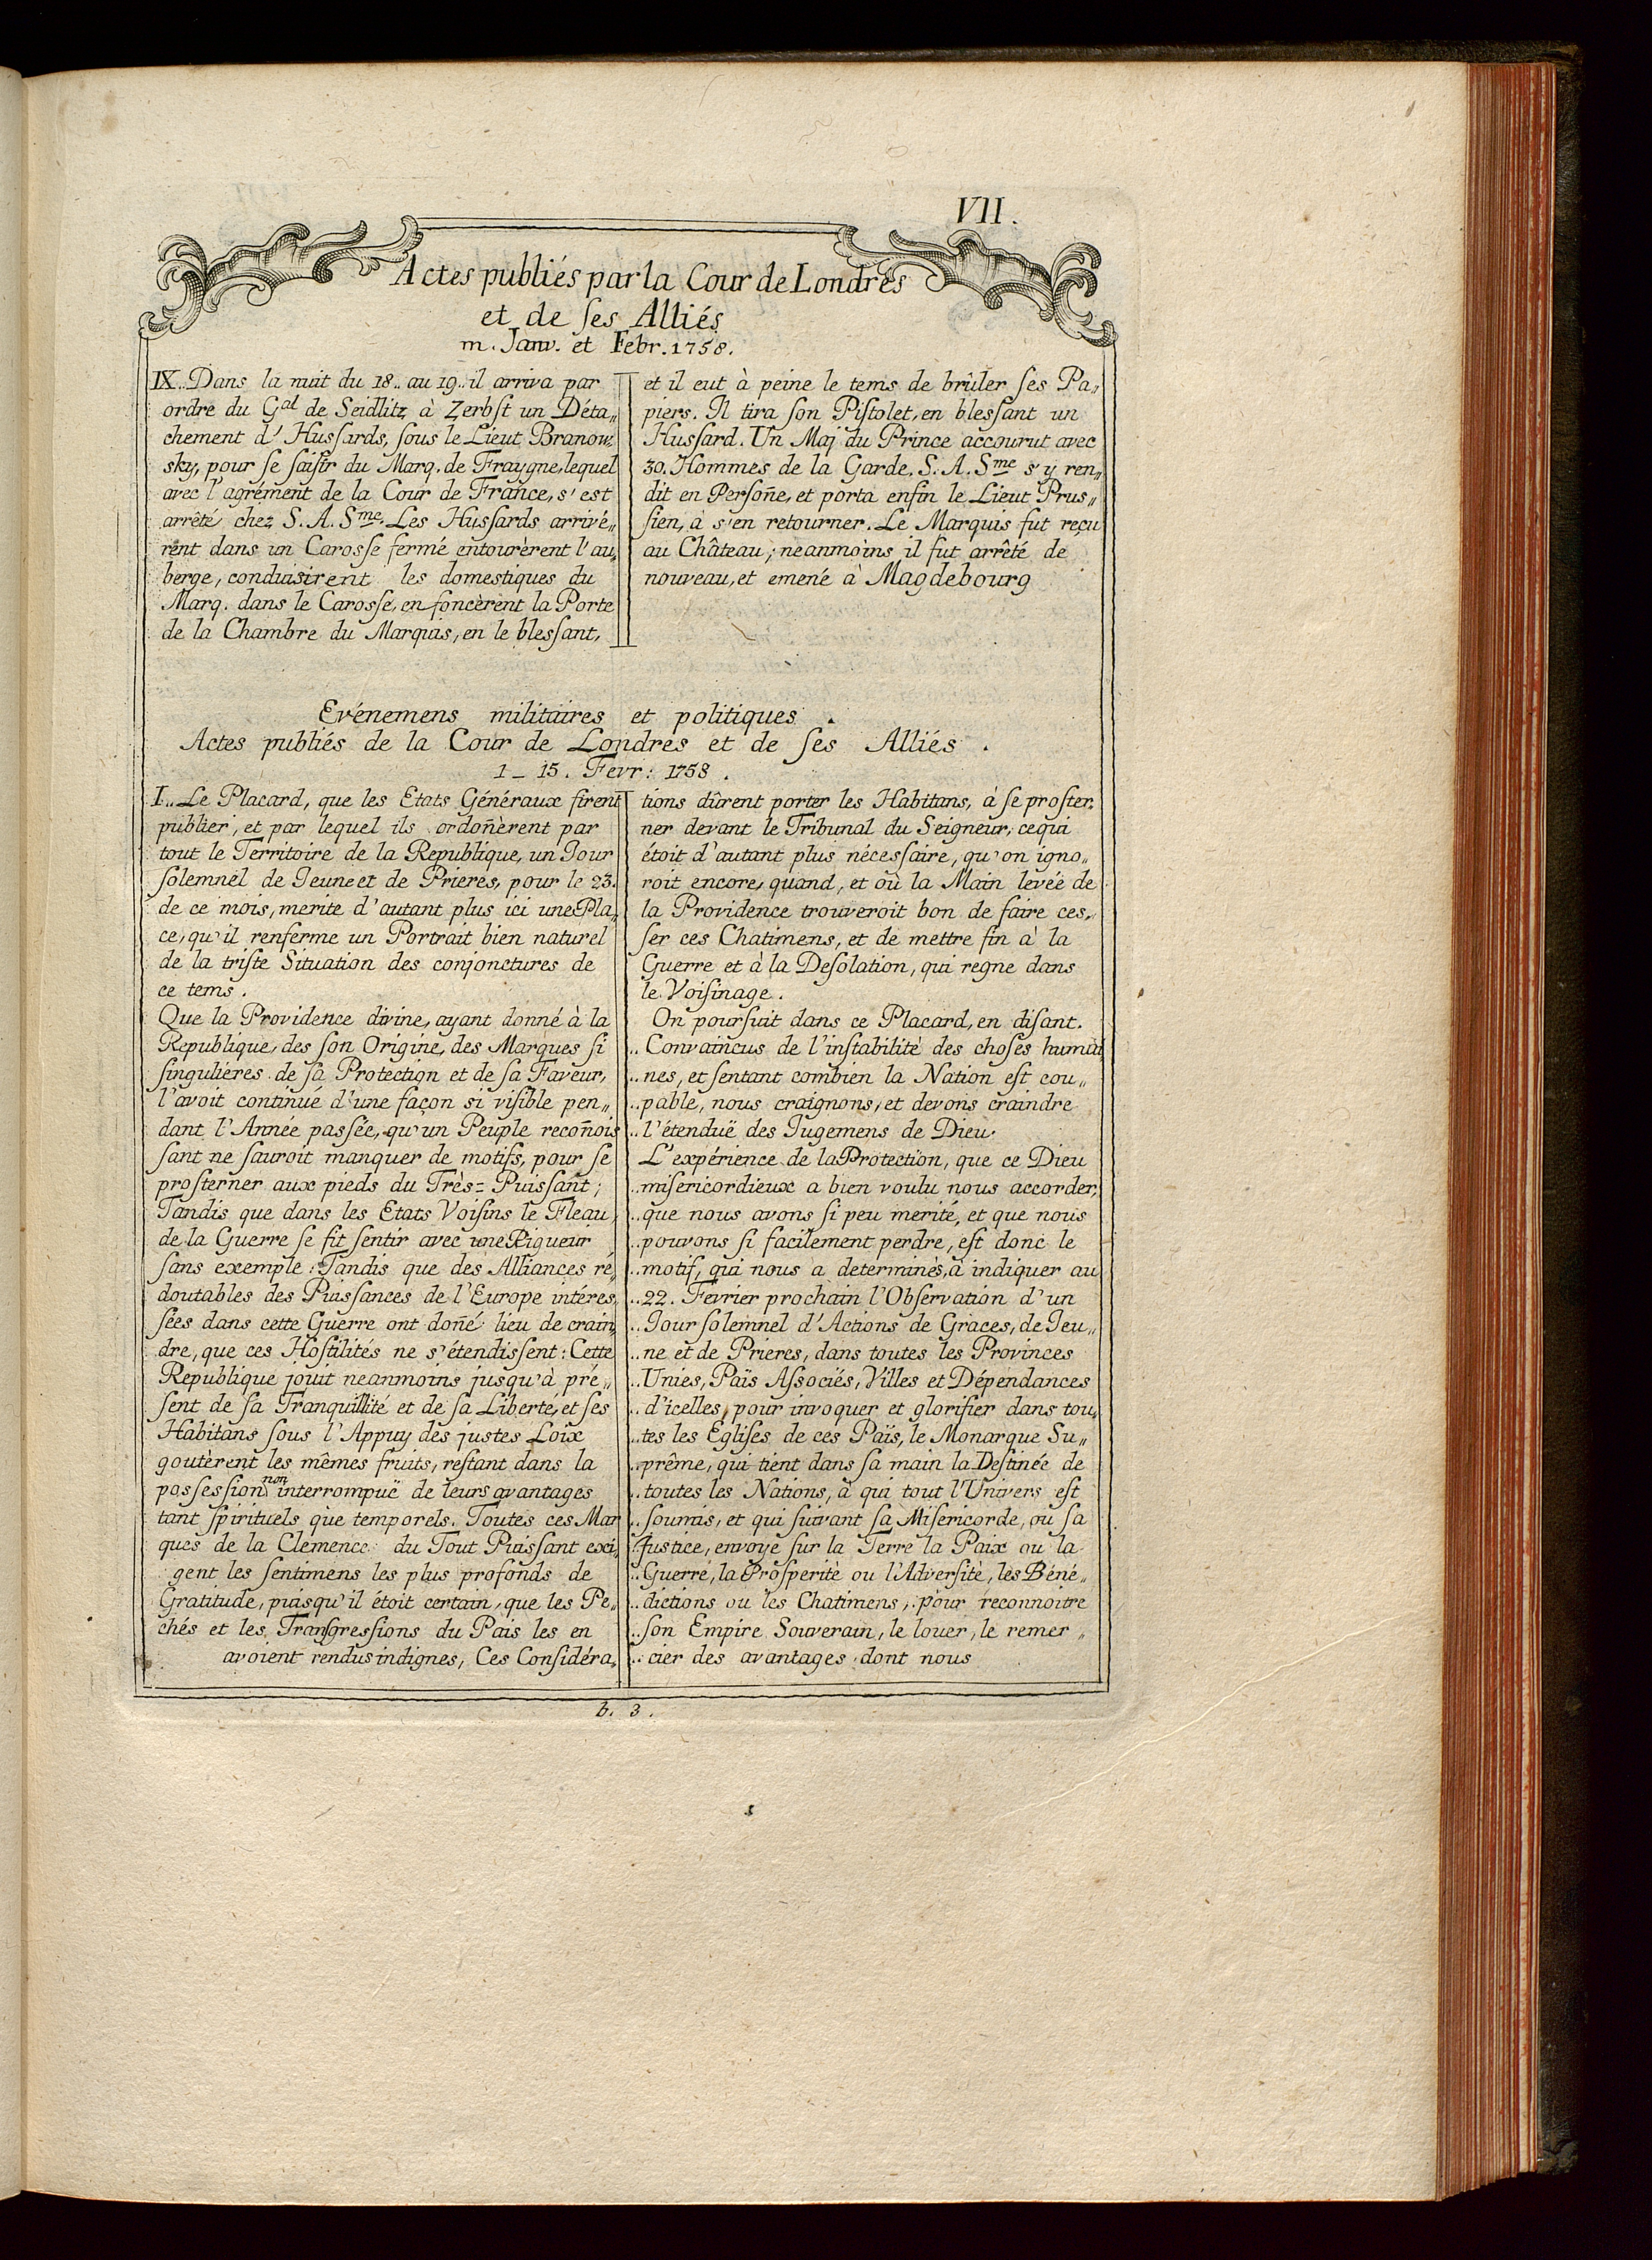 VII.
Actes publiés par la Cour de Londres
et de ſes Alliés
m. Janv. et Febr. 1758.
IX.. Dans la nuit du 18.. au 19.. il arriva par
ordre du Gal de Seidlitz à Zerbſt un Déta„
chement d'Huſsards, ſous le Lieut Branow„
sky, pour ſe ſaiſir du Marq. de Fraygne, lequel
avec l'agrément de la Cour de France, s'est
arrêté chez S. A. Sme. Les Huſsards arrivé„
rent dans un Caroſse fermé entourèrent l'au„
berge, conduisirent les domestiques du
Marq. dans le Caroſse, en foncèrent la Porte
de la Chambre du Marquis, en le bleſsant,
et il eut à peine le tems de brûler ſes Pa„
piers. Il tira ſon Piſtolet, en bleſsant un
Huſsard. Un Maj du Prince accourut avec
30. Hommes de la Garde. S. A. Sme s'y ren„
dit en Perſoñe, et porta enfin le Lieut Prus„
ſien, à s'en retourner. Le Marquis fut reçu
au Château; neanmoins il fut arrêté de
nouveau, et emené à Magdebourg
Evénemens militaires et politiques.
Actes publiés de la Cour de Londres et de ſes Alliés.
1 _ 15. Fevr: 1758.
I.. Le Placard, que les Etats Généraux firent
publier, et par lequel ils ordoñèrent par
tout le Territoire de la Republique, un Jour
ſolemnel de Jeune et de Prieres, pour le 23.
de ce mois, merite d'autant plus ici une Pla„
ce, qu'il renferme un Portrait bien naturel
de la triſte Situation des conjonctures de
ce tems.
Que la Providence divine, ayant donné à la
Republique, des ſon Origine, des Marques ſi
ſinguliéres de ſa Protection et de ſa Faveur,
l'avoit continué d'une façon si viſible pen„
dant l'Année paſsée, qu'un Peuple recoñois
ſant ne ſauroit manquer de motifs, pour ſe
proſterner aux pieds du Très= Puiſsant;
Tandis que dans les Etats Voiſins le Fleau
de la Guerre ſe fit ſentir avec une Rigueur
ſans exemple: Tandis que des Alliances ré„
doutables des Puiſsances de l'Europe intéres„
ſées dans cette Guerre ont doñé lieu de crain„
dre, que ces Hoſtilités ne s'étendiſsent: Cette
Republique jouit neanmoins jusqu'à pré„
ſent de ſa Tranquillité et de ſa Liberté, et ſes
Habitans ſous l'Appuy des justes Loix
goutèrent les mêmes fruits, reſtant dans la
poſseſsion non interrompuë de leurs avantages
tant ſpirituels que temporels. Toutes ces Mar
ques de la Clemence du Tout Puiſsant exi„
gent les ſentimens les plus profonds de
Gratitude, puisqu'il étoit certain, que les Pe„
chés et les Transgreſsions du Païs les en
avoient rendus indignes, Ces Conſidéra„
tions dûrent porter les Habitans, à ſe proſter„
ner devant le Tribunal du Seigneur, ce qui
étoit d'autant plus néceſsaire, qu'on igno„
roit encore, quand, et où la Main levée de
la Providence trouveroit bon de faire ces„
ſer ces Chatimens, et de mettre fin à la
Guerre et à la Deſolation, qui regne dans
le Voiſinage.
On pourſuit dans ce Placard, en diſant.
.. Convaincus de l'inſtabilité des choses humai
.. nes, et ſentant combien la Nation eſt cou„
.. pable, nous craignons, et devons craindre
.. l'étenduë des Jugemens de Dieu.
L'expérience de la Protection, que ce Dieu
.. misericordieux a bien voulu nous accorder,
.. que nous avons ſi peu merité, et que nous
.. pouvons ſi facilement perdre, eſt donc le
.. motif, qui nous a determinés, à indiquer au
.. 22. Fevrier prochain l'Obſervation d'un
.. Jour ſolemnel d'Actions de Graces, de Jeu„
.. ne et de Prieres, dans toutes les Provinces
.. Unies, Païs Aſsociés, Villes et Dépendances
.. d'icelles, pour invoquer et glorifier dans tou„
.. tes les Egliſes de ces Païs, le Monarque Su„
.. prême, qui tient dans ſa main la Deſtinée de
.. toutes les Nations, à qui tout l'Univers eſt
.. ſoumis, et qui ſuivant ſa Miſericorde, ou ſa
.. Juſtice, envoye ſur la Terre la Paix ou la
.. Guerre, la Proſperité ou l'Adverſité, les Béné„
.. dictions ou les Chatimens, pour reconnoitre
.. ſon Empire Souverain, le louer, le remer„
.. cier des avantages dont nous
b. 3.